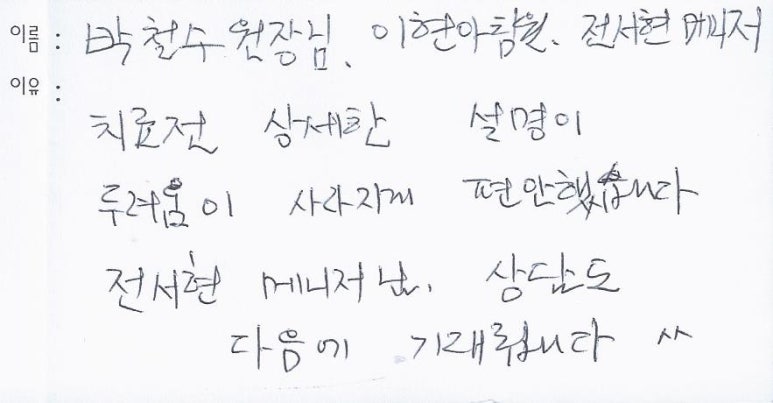 이름 : 박철수 원장님, 이현아팀원. 전서현 메니저
이유 :
치료전 상세한 설명이
두려움이 사라지게 편안했습니다
전서현 메니저님. 상담도
다음에 기대됩니다 ^^